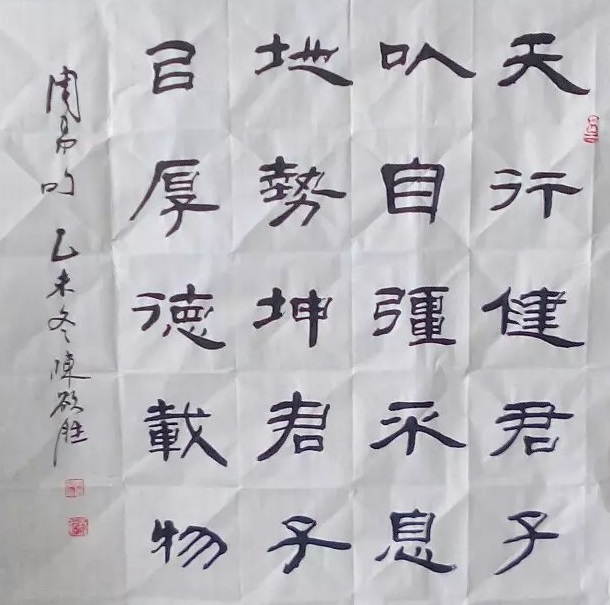 天行健君子
㕥自彊不息
地勢坤君子
㠯厚德載物
周易句 乙未冬陳胜